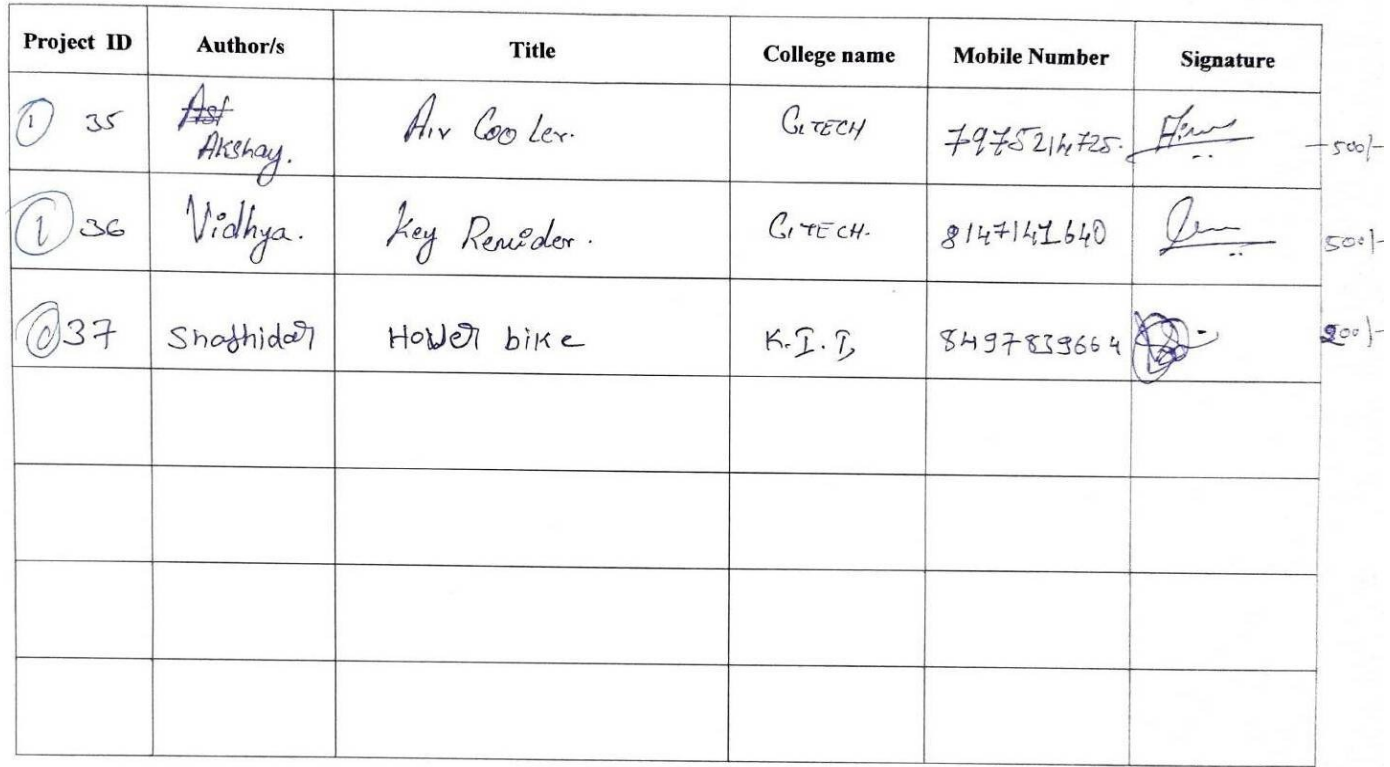 Project ID Author/s Title College name Mobile Number Signature
1 35 Akshay. Air Cooler. GITECH 500/-
1 36 Vidhya. Key Remider. GITECH. 8147141640 500/-
37 Shashidar Hover bike K.I.T, 8497839664 200/-